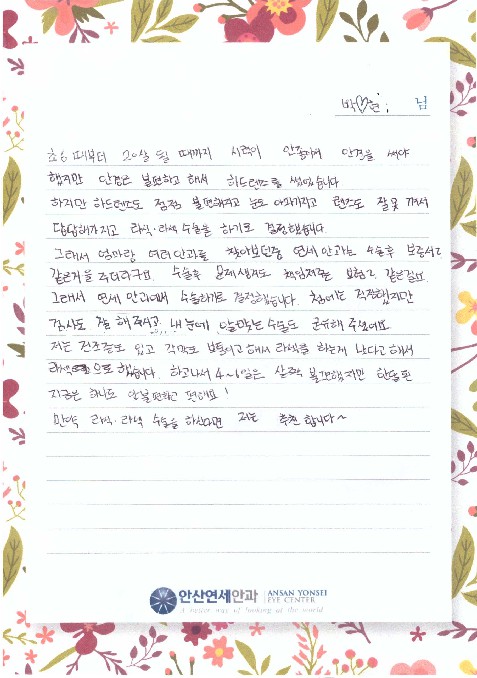 박♡현 님
초6때부터 20살 될 때까지 시력이 안좋아서 안경을 써야
했지만 안경은 불편하고 해서 하드렌즈를 썼었습니다
하지만 하드렌즈도 점점 불편해지고 눈도 아파지고 렌즈도 잘못 껴서
답답해가지고 라식·라섹 수술을 하기로 결정했습니다.
그래서 엄마랑 여러안과를 찾아보던중 연세안과는 수술후 보증서
같은거를 주더라구요. 수술후 문제생겨도 책임져주는 보험 같은걸요.
그래서 연세 안과에서 수술하기로 결정했습니다. 처음에는 걱정했지만
검사도 잘 해 주시고, 내 눈에 알맞는 수술도 권유해 주셨어요
저는 건조증도 있고 각막도 보통이고 해서 라섹을 하는게 낫다고 해서
라섹으로 했습니다. 하고나서 4~5일은 살짝 불편했지만 한달된
지금은 하나도 안불편하고 편해요!
만약 라식·라섹 수술을 하신다면 저는 추천 합니다~
안산연세안과 ANSAN YONSEI
EYE CENTER
A better way of looking at the world